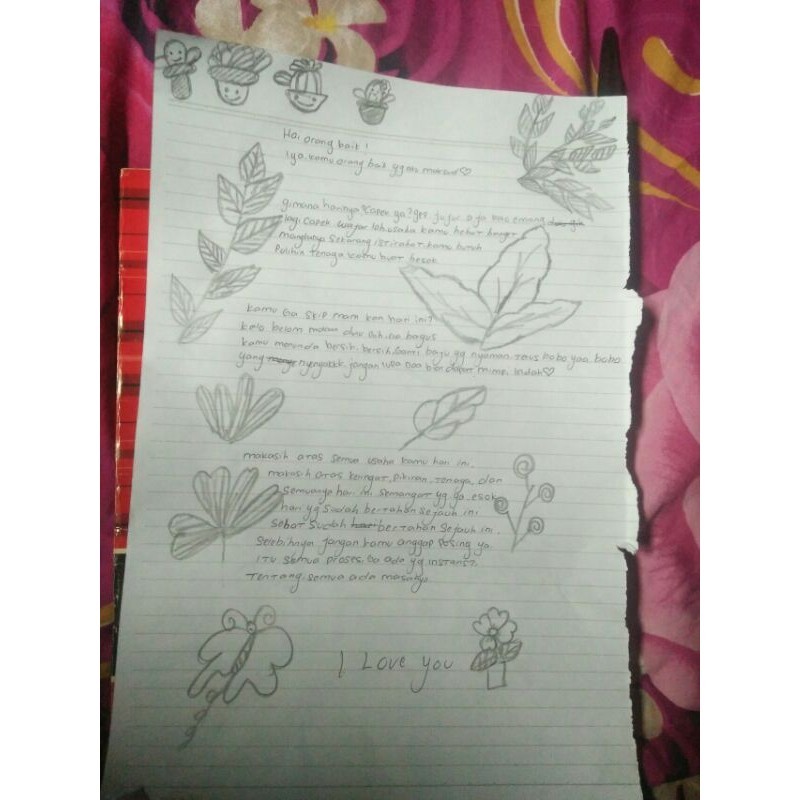 Hai orang baik!
Iya kamu orang baik yg aku maksud
gimana harinya? Capek ya? gpp jujur aja kalo emang
lagi Capek wajar loh, usaha kamu hebat banget
mangkanya Sekarang istirahat kamu butuh
Pulihin tenaga kamu buat besok
kamu Ga Skip mam kan hari ini?
kalo belom makan dlu
kamu mandi bersih-bersih Ganti baju yg nyaman. terus bobo yaa. bobo
yang nyenyak. jangan lupa doa biar dapet mimpi indah
makasih atas semua usaha kamu hari ini.
makasih atas keringat, pikiran, tenaga, dan
Semuanya hari ini semangat yg ya esok
hari yg Sudah bertahan Sejauh ini
Sehat Sudah bertahan Sejauh ini.
Selebihnya jangan kamu anggap Pusing ya
itu semua proses. Ga ada yg instan?
Tentang semua ada masanya
I Love you